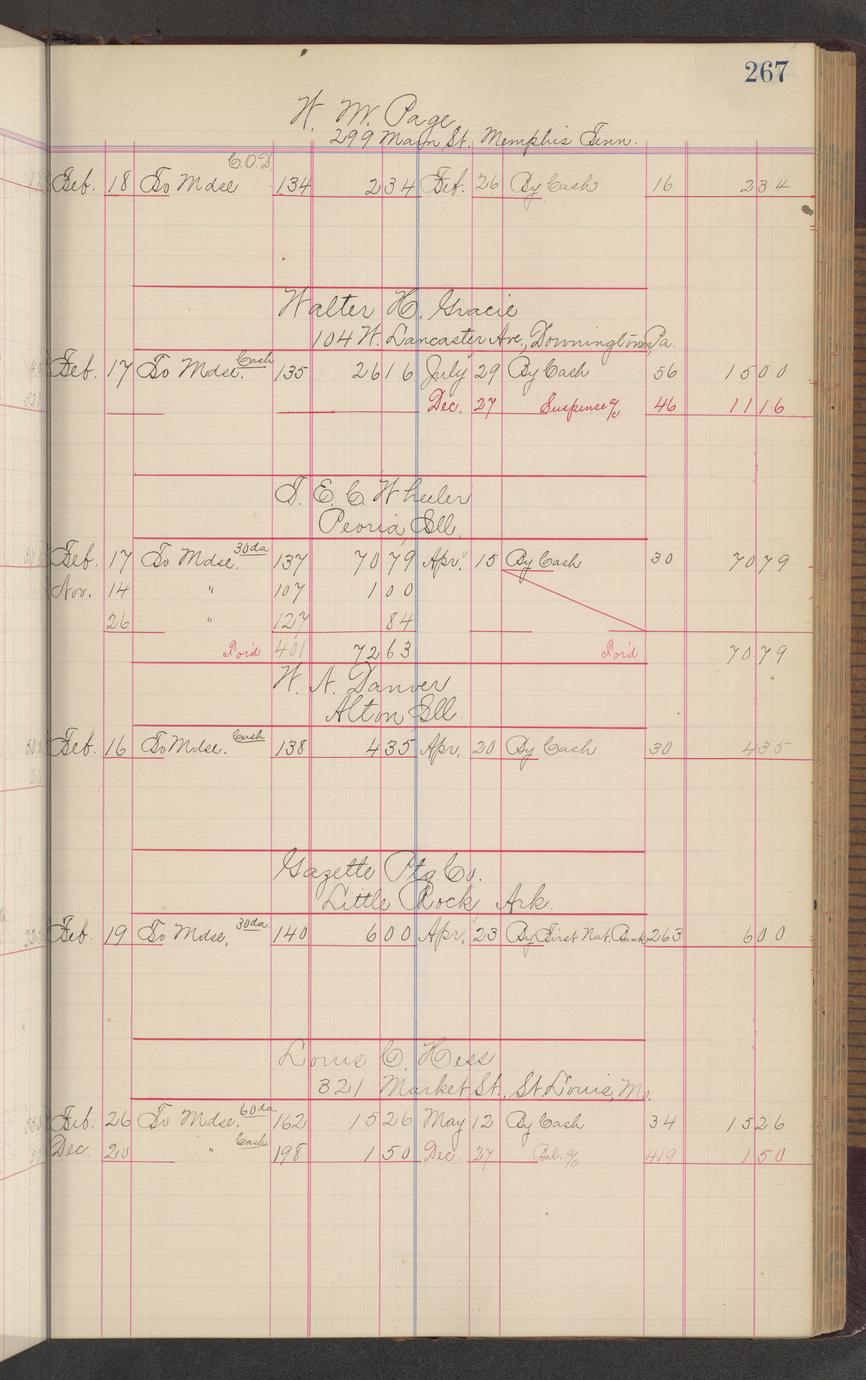 267
W. M. Page
299 Main St. Memphis Tenn.
C.O.D.
Feb. 18 To Mdse 134 234 Feb. 26 By Cash 16 234
Walter H. Gracie
104 W. Lancaster Ave., Downington, Pa.
Feb. 17 To Mdse. Cash 135 2616 July 29 By Cash 56 1500
Dec. 27 Suspense a/c 46 1116
T. E. C. Wheeler
Peoria, Ill.
Feb. 17 To Mdse. 30 da 137 7079 Apr. 15 By Cash 30 7079
Nov. 14 " 107 100
26 " 127 84
For'd 401 7263 For'd 7079
W. N. Danver
Alton Ill.
Feb. 16 To Mdse. Cash 138 435 Apr. 20 By Cash 30 435
Gazette Ptg. Co.
Little Rock Ark.
Feb. 19 To Mdse. 30 da 140 600 Apr. 23 By First Nat. Bank 263 600
Louis C. Hess
321 Market St., St. Louis, Mo.
Feb. 26 To Mdse. 60 da. 162 1526 May 12 By Cash 34 1526
Dec. 20 " Cash 198 150 Dec. 27 Bal. a/c 419 150